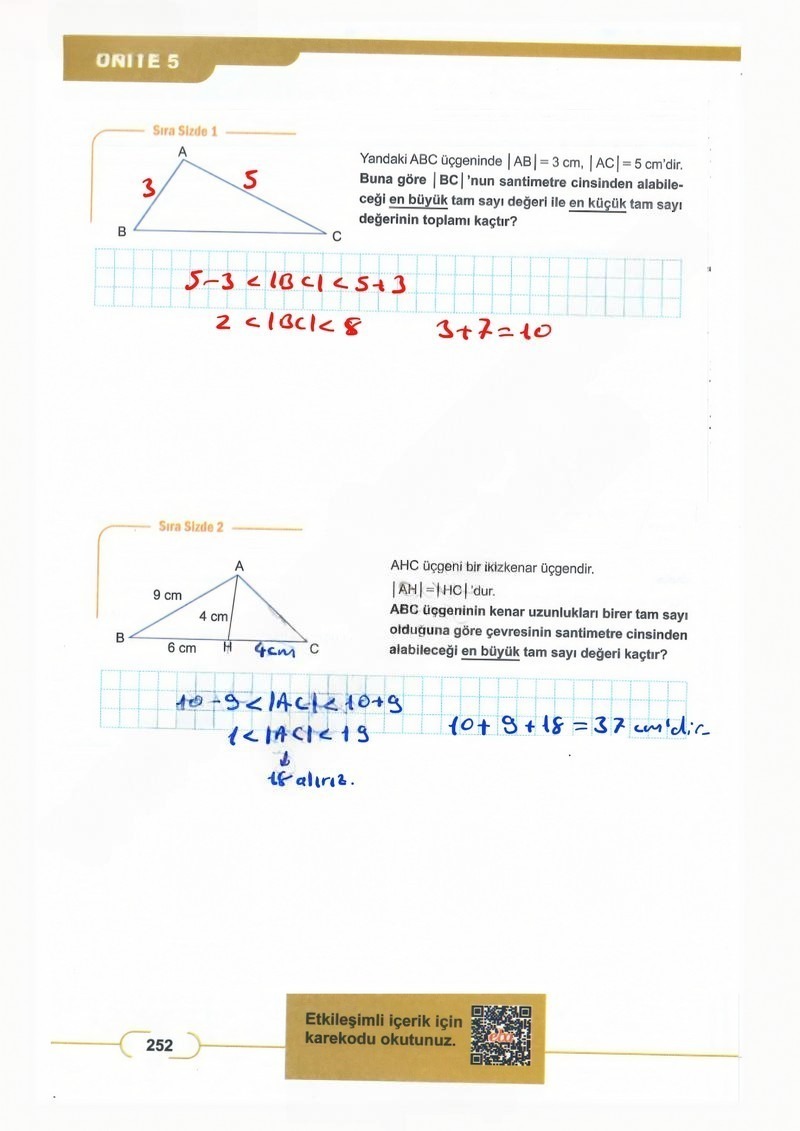 ÜNİTE 5
Sıra Sizde 1
A
3
5
B
C
Yandaki ABC üçgeninde |AB| = 3 cm, |AC| = 5 cm'dir.
Buna göre |BC|'nun santimetre cinsinden alabile-
ceği en büyük tam sayı değeri ile en küçük tam sayı
değerinin toplamı kaçtır?
5-3 < |BC| < 5+3
2 < |BC| < 8
3+7=10
Sıra Sizde 2
A
9 cm
4 cm
B
6 cm
H
4cm
C
AHC üçgeni bir ikizkenar üçgendir.
|AH| = |HC|'dur.
ABC üçgeninin kenar uzunlukları birer tam sayı
olduğuna göre çevresinin santimetre cinsinden
alabileceği en büyük tam sayı değeri kaçtır?
10-9 < |AC| < 10+9
1 < |AC| < 19
↓
18 alırız.
10+9+18=37 cm'dir
252
Etkileşimli içerik için
karekodu okutunuz.
eba